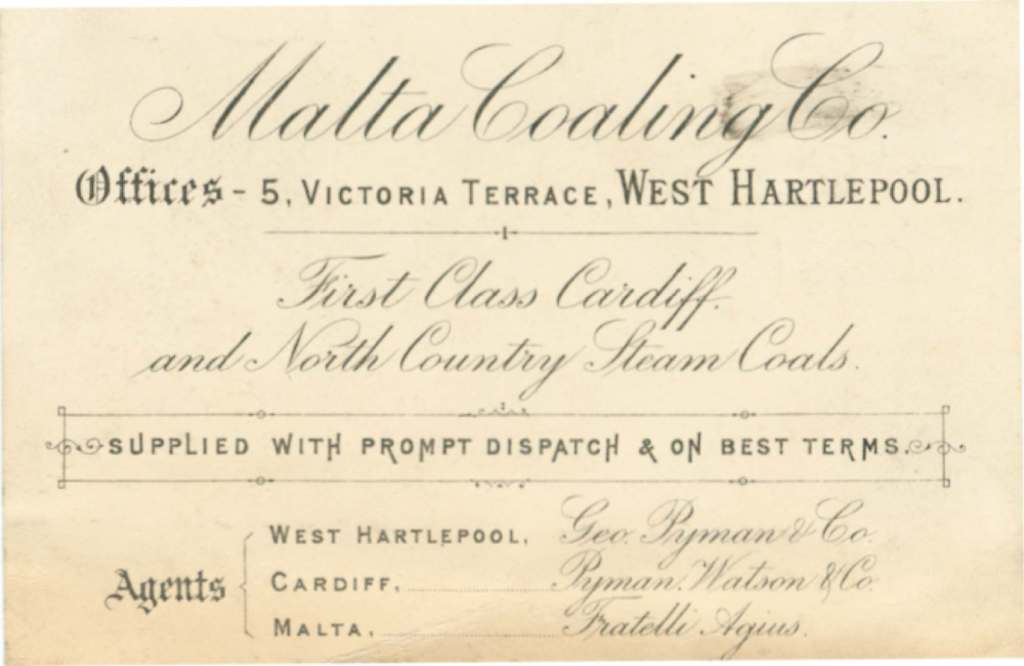 Malta Coaling Co.
Offices - 5, VICTORIA TERRACE, WEST HARTLEPOOL.
First Class Cardiff
and North Country Steam Coals.
SUPPLIED WITH PROMPT DISPATCH & ON BEST TERMS.
Agents
WEST HARTLEPOOL, Geo. Pyman & Co.
CARDIFF, Pyman, Watson & Co.
MALTA, Fratelli Agius.